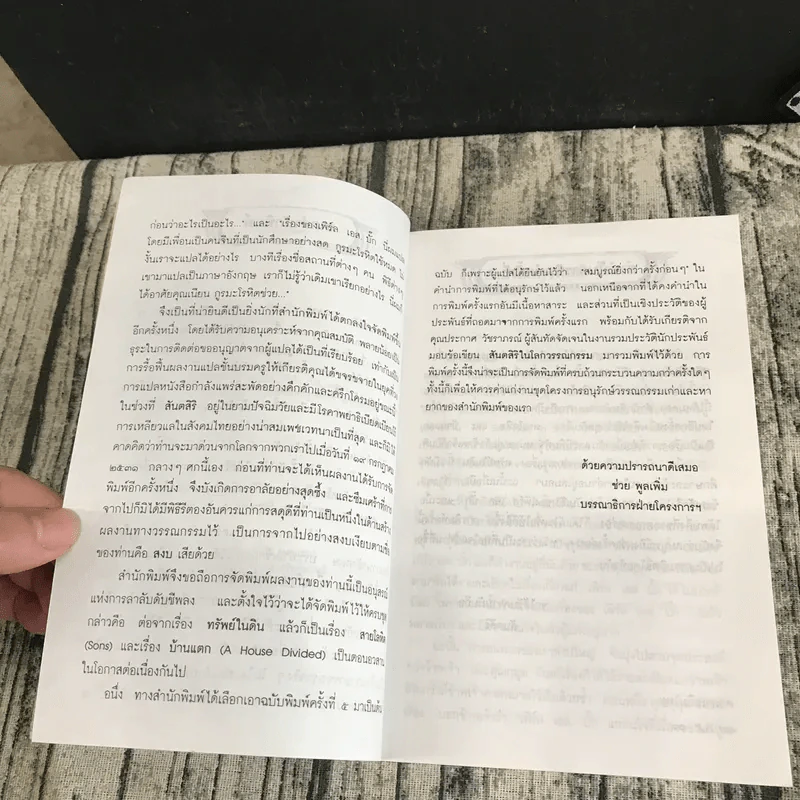 ก่อนว่าอะไรเป็นอะไร..." และ "เรื่องของเพิร์ล เอส บั๊ก
โดยมีเพื่อนเป็นคนจีนที่เป็นนักศึกษาอย่างสด ภูรมะโรหิตใช้หมด ไม่
งั้นเราจะแปลได้อย่างไร บางทีเรื่องชื่อสถานที่ต่างๆ คน พิธีต่างๆ
เขามาแปลเป็นภาษาอังกฤษ เราก็ไม่รู้ว่าเดิมเขาเรียกอย่างไร
ได้อาศัยคุณเนียน ภูรมะโรหิตช่วย..."
จึงเป็นที่น่ายินดีเป็นยิ่งนักที่สำนักพิมพ์ได้ตกลงใจจัดพิมพ์ขึ้น
อีกครั้งหนึ่ง โดยได้รับความอนุเคราะห์จากคุณสมบัติ พลายน้อย
ธุระในการติดต่อขออนุญาตจากผู้แปลได้เป็นที่เรียบร้อย เท่ากับเป็น
การรื้อฟื้นผลงานแปลชั้นบรมครูให้เกียรติคุณได้ขจรขจายในยุคที่
การแปลหนังสือกำลังแพร่สะพัดอย่างคึกคักและครึกโครมอยู่ขณะนี้
ในช่วงที่ สันตสิริ อยู่ในยามปัจฉิมวัยและมีโรคาพยาธิเบียดเบียน
การเหลียวแลในสังคมไทยอย่างน่าสมเพชเวทนาเป็นที่สุด และก็มิได้
คาดคิดว่าท่านจะมาด่วนจากโลกจากพวกเราไปเมื่อวันที่ ๑๙ กรกฎาคม
๒๕๓๑ กลางๆ ศกนี้เอง ก่อนที่ท่านจะได้เห็นผลงานได้รับการจัด
พิมพ์อีกครั้งหนึ่ง จึงบังเกิดการอาลัยอย่างสุดซึ้ง และซึมเศร้าที่การ
จากไปก็มิได้มีพิธีรีตองอันควรแก่การสดุดีที่ท่านเป็นหนึ่งในด้านสร้าง
ผลงานทางวรรณกรรมไว้ เป็นการจากไปอย่างสงบเงียบตามชื่อ
ของท่านคือ สงบ เสียด้วย
สำนักพิมพ์จึงขอถือการจัดพิมพ์ผลงานของท่านนี้เป็นอนุสรณ์
แห่งการลาลับดับชีพลง และตั้งใจไว้ว่าจะได้จัดพิมพ์ไว้ให้ครบชุด
กล่าวคือ ต่อจากเรื่อง ทรัพย์ในดิน แล้วก็เป็นเรื่อง สายโลหิต
(Sons) และเรื่อง บ้านแตก (A House Divided) เป็นตอนอวสาน
ในโอกาสต่อเนื่องกันไป
อนึ่ง ทางสำนักพิมพ์ได้เลือกเอาฉบับพิมพ์ครั้งที่ ๕ มาเป็นต้น
ฉบับ ก็เพราะผู้แปลได้ยืนยันไว้ว่า "สมบูรณ์ยิ่งกว่าครั้งก่อนๆ" ใน
คำนำการพิมพ์ที่ได้อนุรักษ์ไว้แล้ว นอกเหนือจากที่ได้คงคำนำใน
การพิมพ์ครั้งแรกอันมีเนื้อหาสาระ และส่วนที่เป็นเชิงประวัติของผู้
ประพันธ์ที่ถอดมาจากการพิมพ์ครั้งแรก พร้อมกับได้รับเกียรติจาก
คุณประกาศ วัชราภรณ์ ผู้สันทัดจัดเจนในงานรวมประวัตินักประพันธ์
มอบข้อเขียน สันตสิริในโลกวรรณกรรม มารวมพิมพ์ไว้ด้วย การ
พิมพ์ครั้งนี้จึงน่าจะเป็นการพิมพ์ที่ครบถ้วนกระบวนความกว่าครั้งใดๆ
ทั้งนี้ก็เพื่อให้ควรค่าแก่งานขุดโครงการอนุรักษ์วรรณกรรมเก่าและหา
ยากของสำนักพิมพ์ของเรา
ด้วยความปรารถนาดีเสมอ
ช่วย พูลเพิ่ม
บรรณาธิการฝ่ายโครงการฯ